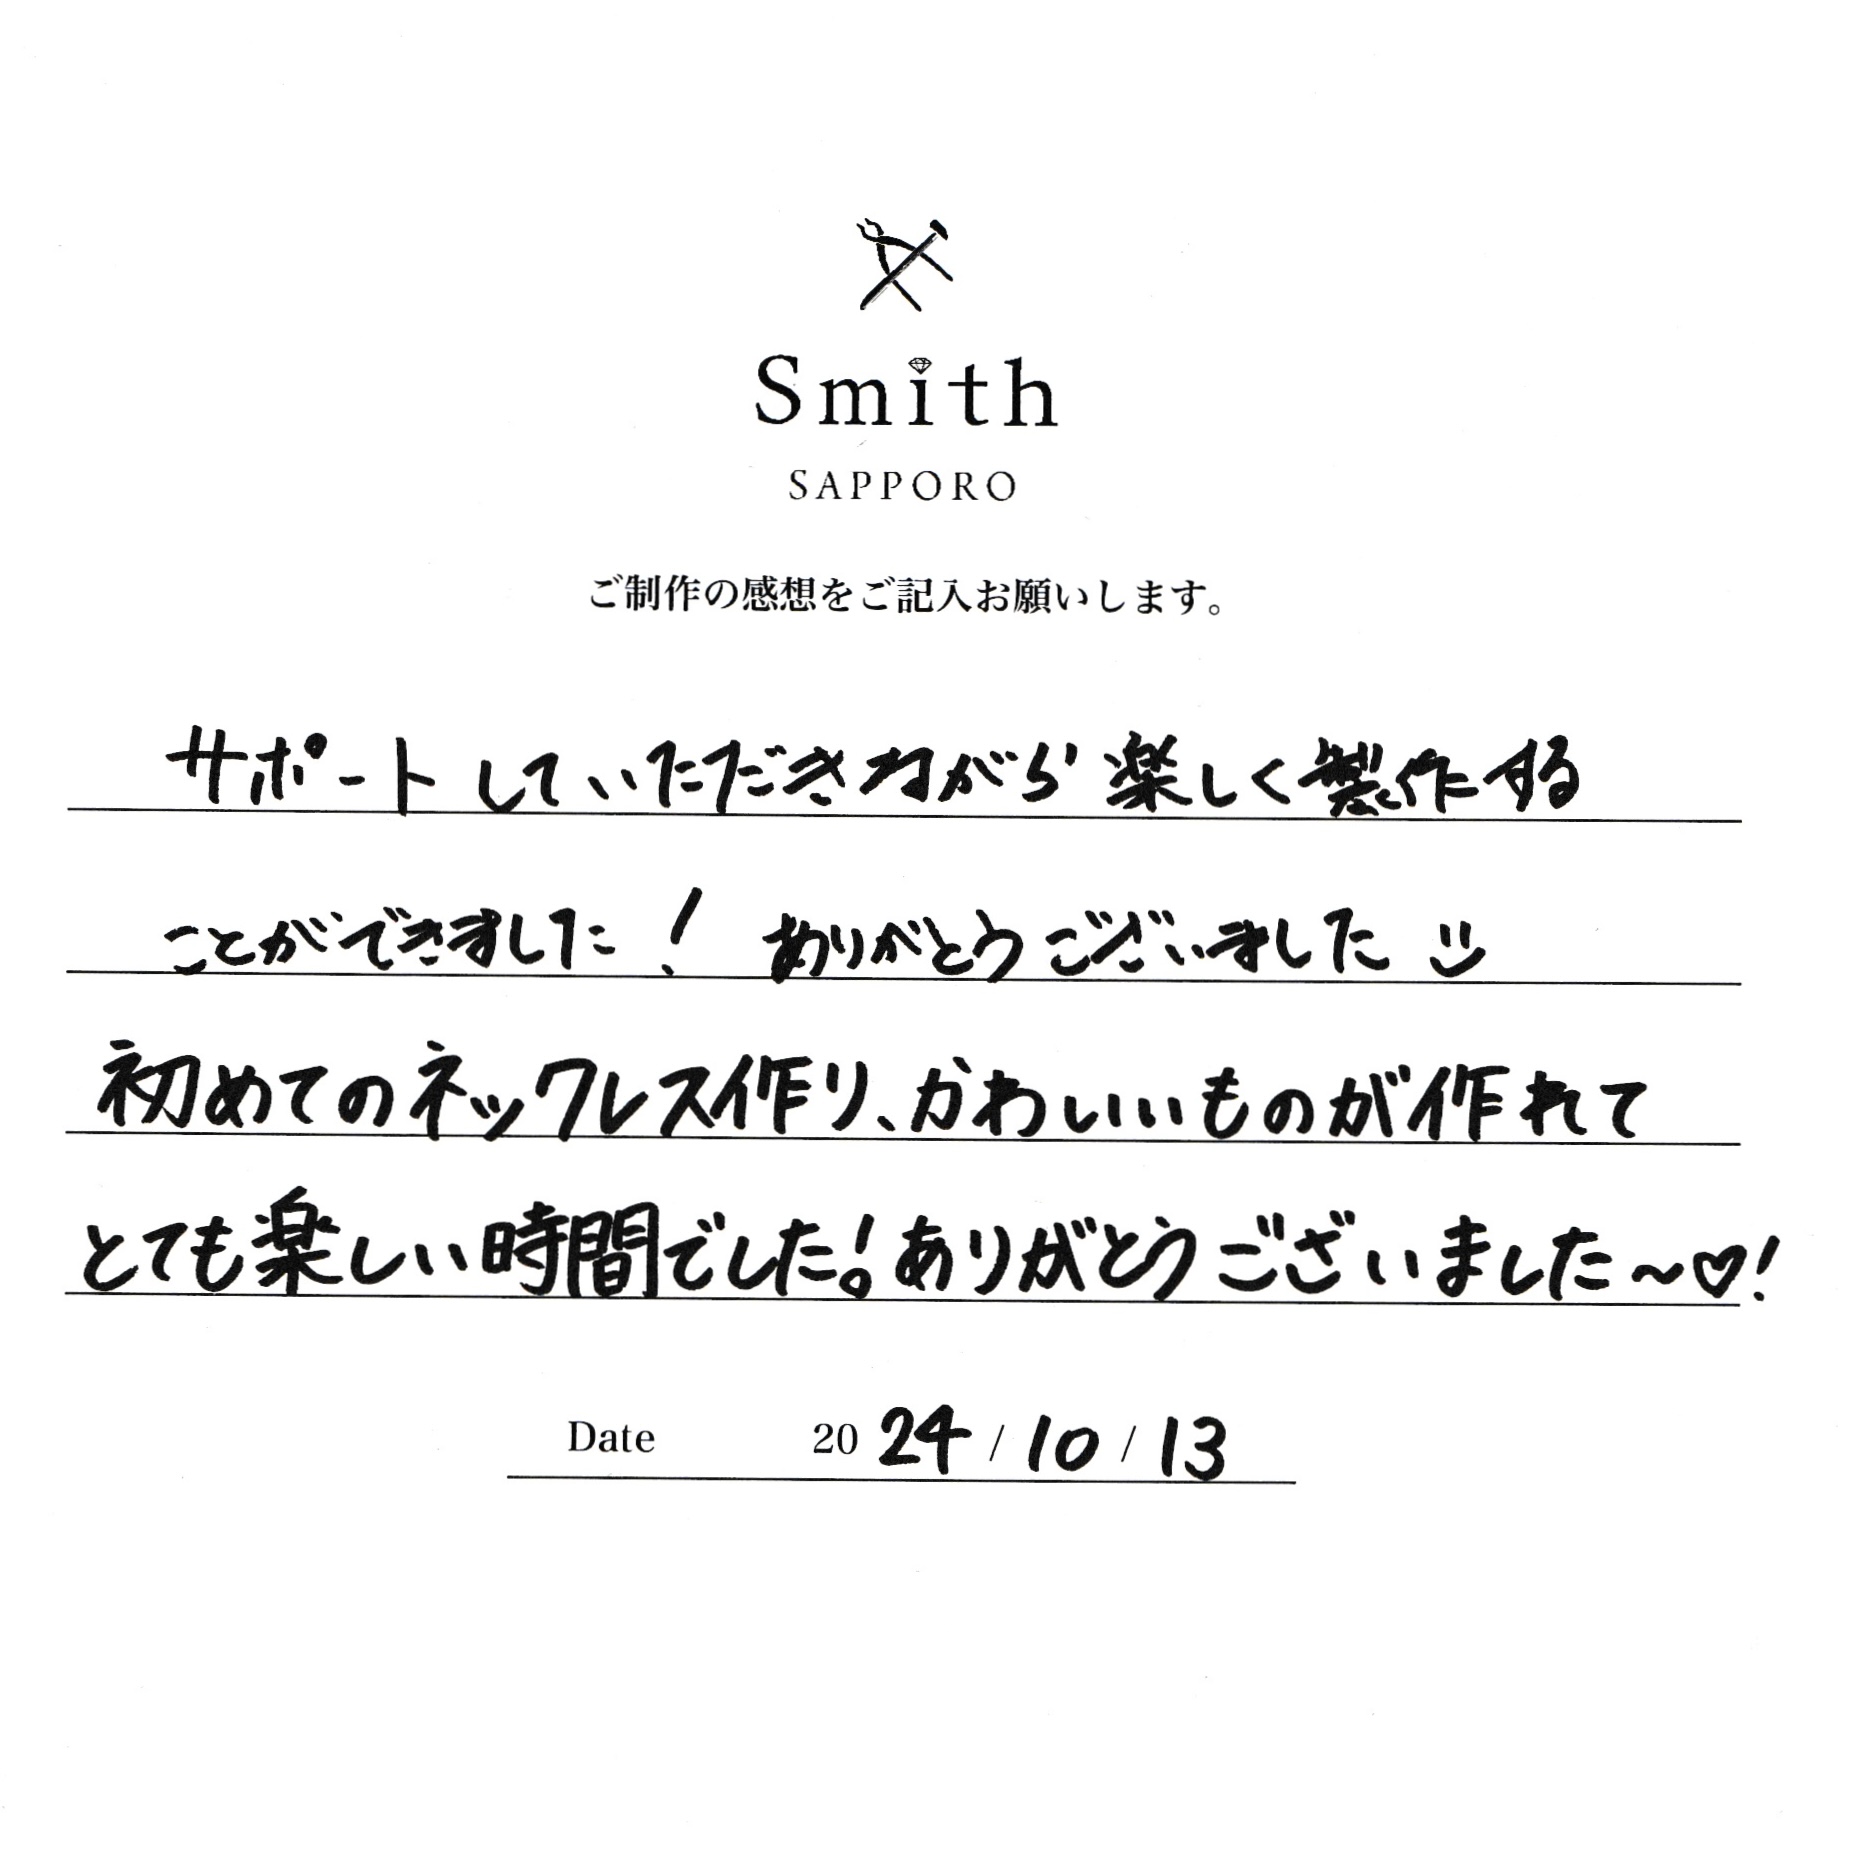 Smith
SAPPORO
ご制作の感想をご記入お願いします。
サポートしていただきながら楽しく製作する
ことができました! ありがとうございました
初めてのネックレス作り、かわいいものが作れて
とても楽しい時間でした!。ありがとうございました〜♡!
Date 2024/10/13